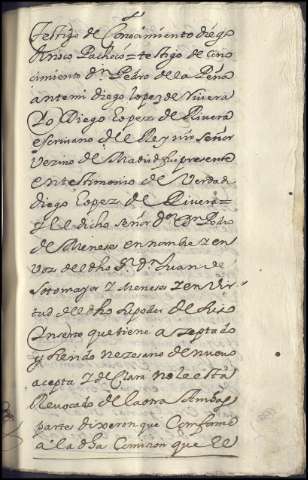 testigo de Conocimiento diego
Orisco Pacheco = testigo de cono
cimiento Dn Pedro de la Peña
ante mi diego Lopez de Rivera
Yo Diego Lopez de Rivera
escrivano del Rey nro señor
Vezino de Madrid fui presente
en testimonio de Verdad
diego Lopez de Rivera =
Y el dicho señor Dn Pedro
de Meneses en nombre y en
voz del dho Sr Dn Juan de
Sotomayor y Meneses y en vir
tud del dho su poder de suso
Inserto que tiene aceptado
y siendo nezesario de nuevo
acepta y declara no le esta
Revocado de la ora Ambas
partes dixeron que Conforme
a la dha Comision que el